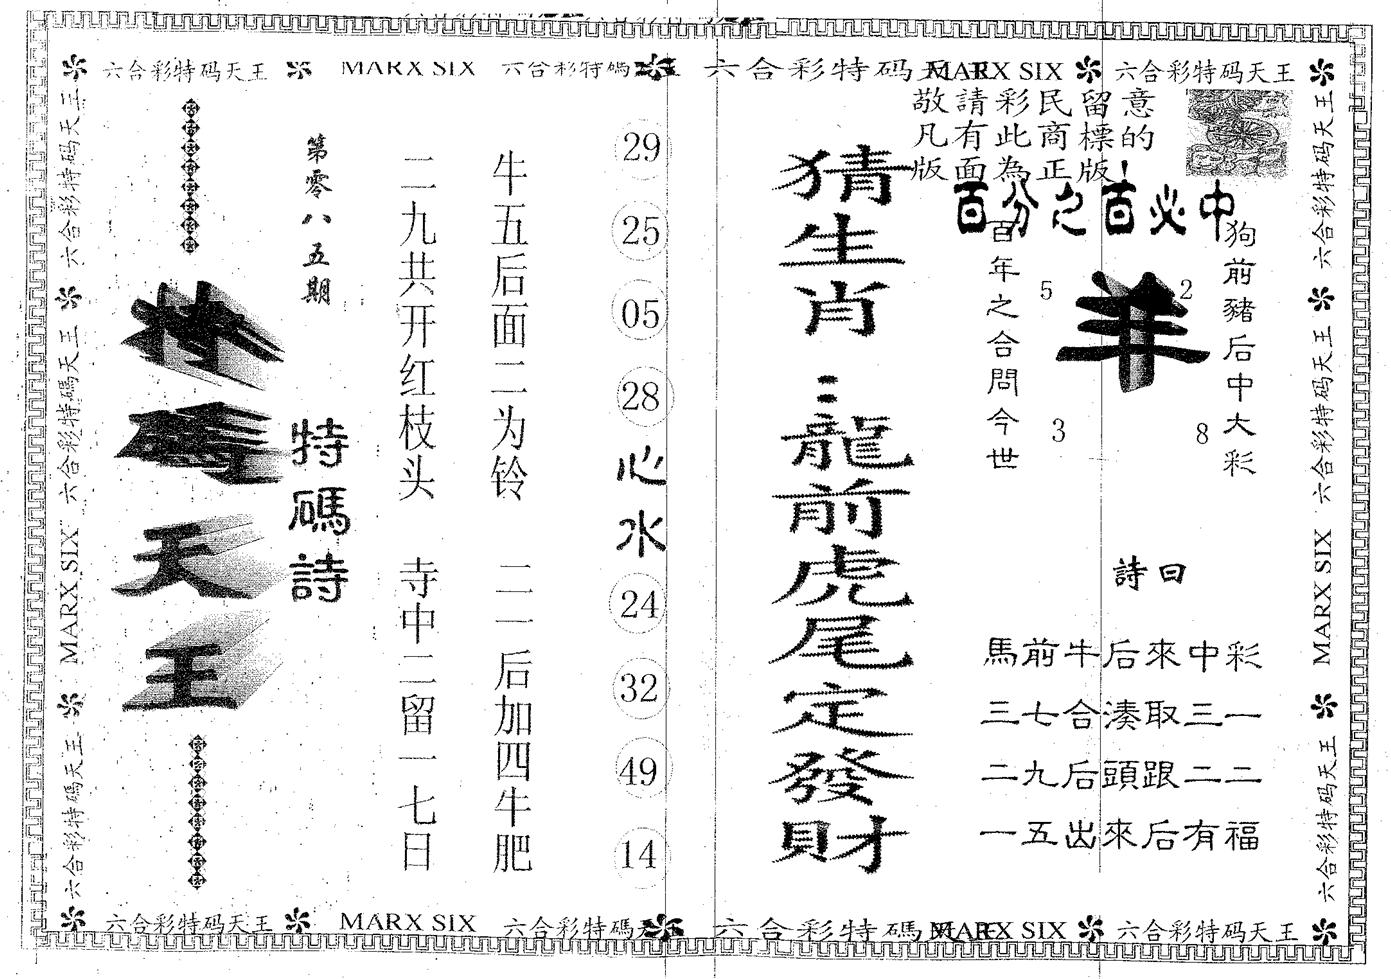 六合彩特码天王 MARX SIX 六合彩特碼天王 六合彩特码天王 MARX SIX 六合彩特码天王
敬請彩民留意
凡有此商標的
版面為正版!
百分之百必中
狗前豬后中大彩
羊
5 2
3 8
百年之合問今世
詩曰
馬前牛后來中彩
三七合湊取三一
二九后頭跟二二
一五出來后有福
猜生肖:龍前虎尾定發財
29
25
05
28
心水
24
32
49
14
牛五后面二为铃
二一后加四牛肥
二九共开红枝头
寺中二留一七日
第零八五期
特碼詩
特碼天王
六合彩特码天王
六合彩特碼天王
MARX SIX
六合彩特码天王
六合彩特码天王
六合彩特码天王
MARX SIX
六合彩特码天王
六合彩特码天王 MARX SIX 六合彩特碼天王 六合彩特碼天王 MARX SIX 六合彩特码天王